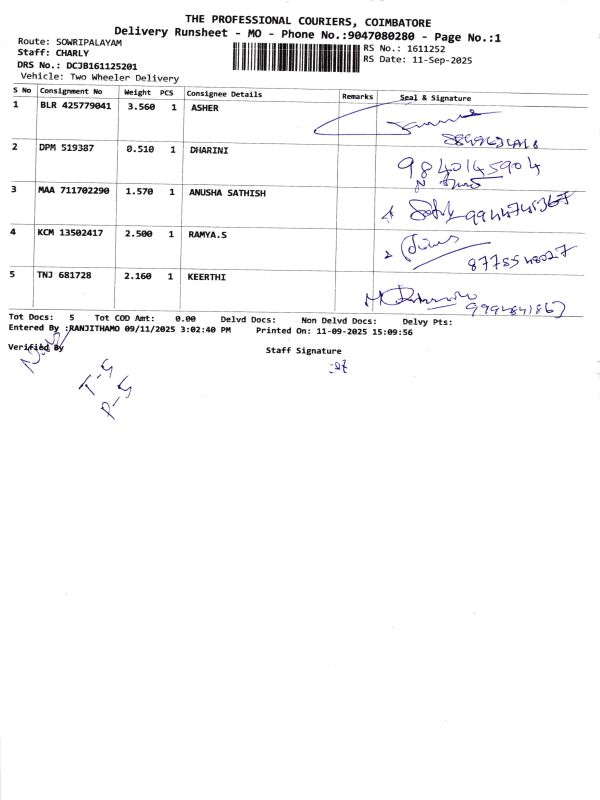 THE PROFESSIONAL COURIERS, COIMBATORE
Delivery Runsheet - MO - Phone No.:9047080280 - Page No.:1
Route: SOWRIPALAYAM
Staff: CHARLY
RS No.: 1611252
DRS No.: DCJB161125201
RS Date: 11-Sep-2025
Vehicle: Two Wheeler Delivery
S No Consignment No Weight PCS Consignee Details Remarks Seal & Signature
1 BLR 425779041 3.560 1 ASHER
2 DPM 519387 0.510 1 DHARINI 9840145904
3 MAA 711702290 1.570 1 ANUSHA SATHISH
4 KCM 13502417 2.500 1 RAMYA.S 8778548027
5 TNJ 681728 2.160 1 KEERTHI
Tot Docs: 5 Tot COD Amt: 0.00 Delvd Docs: Non Delvd Docs: Delvy Pts:
Entered By :RANJITHAMO 09/11/2025 3:02:40 PM Printed On: 11-09-2025 15:09:56
Verified By Staff Signature
T-5
P-5